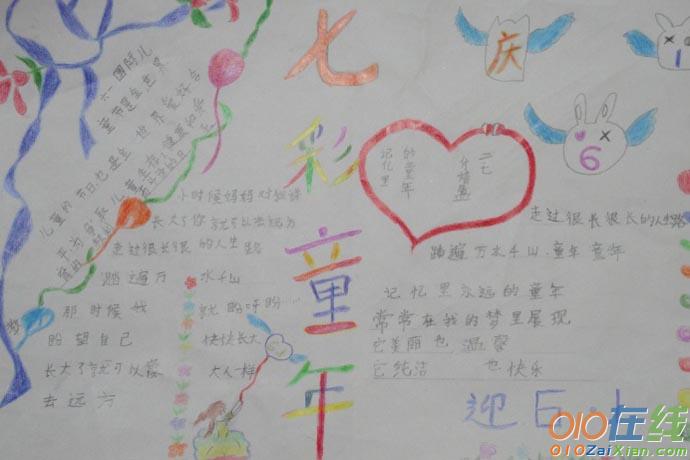 七彩童年
庆
1
6
六一国际儿
童节是全世界
儿童的节日也是全世界爱好合
平为争取儿童生存健康和受
小时候妈妈对我讲
长大了你就可以去远方
走过很长很长的人生路
踏遍万水千山
那时候我就盼呀盼
盼望自己快快长大
长大了就可以像大人一样
去远方
记忆里
的童年
二七
走过很长很长的人生路
踏遍万水千山童年童年
记忆里永远的童年
常常在我的梦里展现
它美丽也温馨
它纯洁也快乐
迎6.1
010在线
010ZaiXian.com